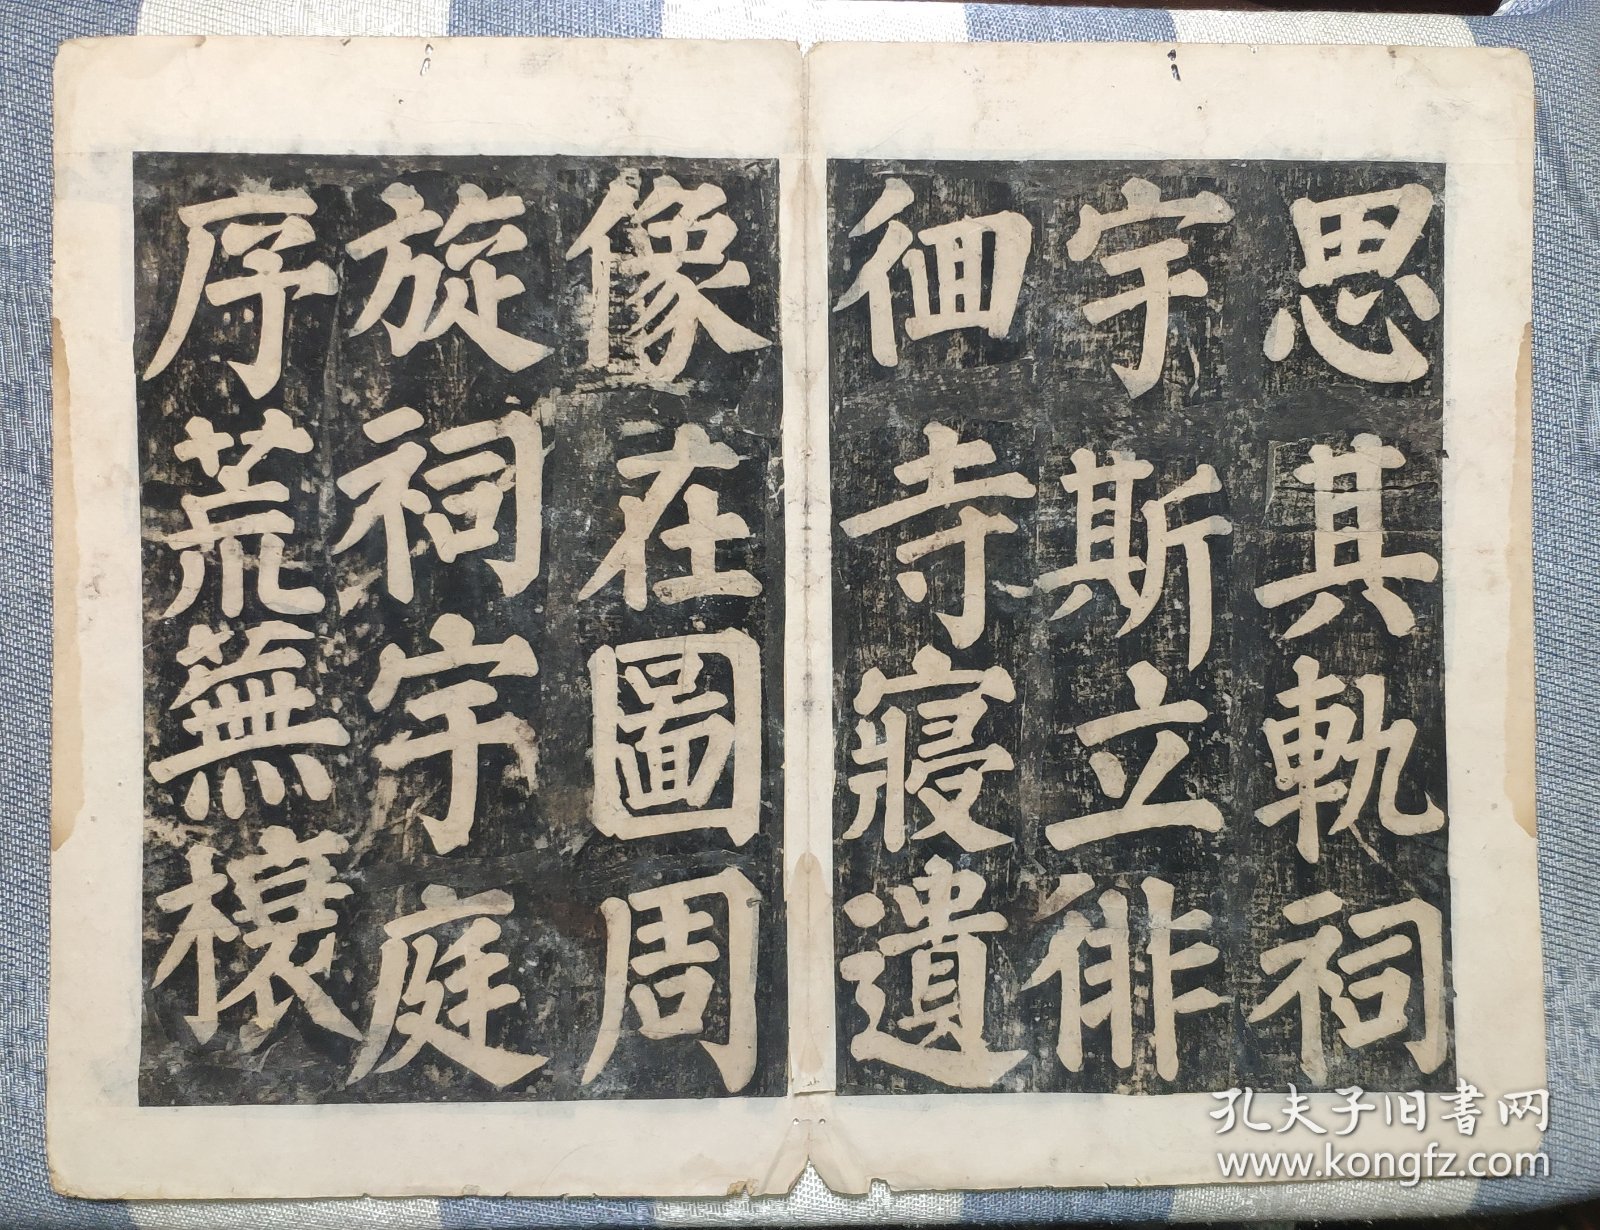 思其軌祠
宇斯立俳
徊寺寢遺
像在圖周
旋祠宇庭
序荒蕪榱
孔夫子旧書网
www.kongfz.com